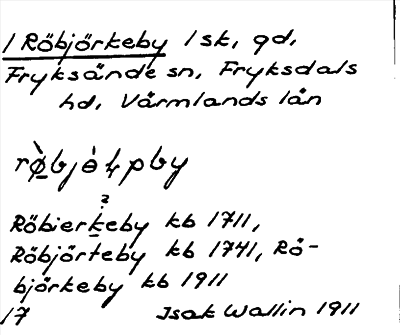 / Röbjörkeby / sk, gd,
Fryksände sn, Fryksdals
hd, Värmlands län
?
Röbierkeby kb 1711,
Röbjörteby kb 1741, Rö-
björkeby kb 1911
17 Isak Wallin 1911